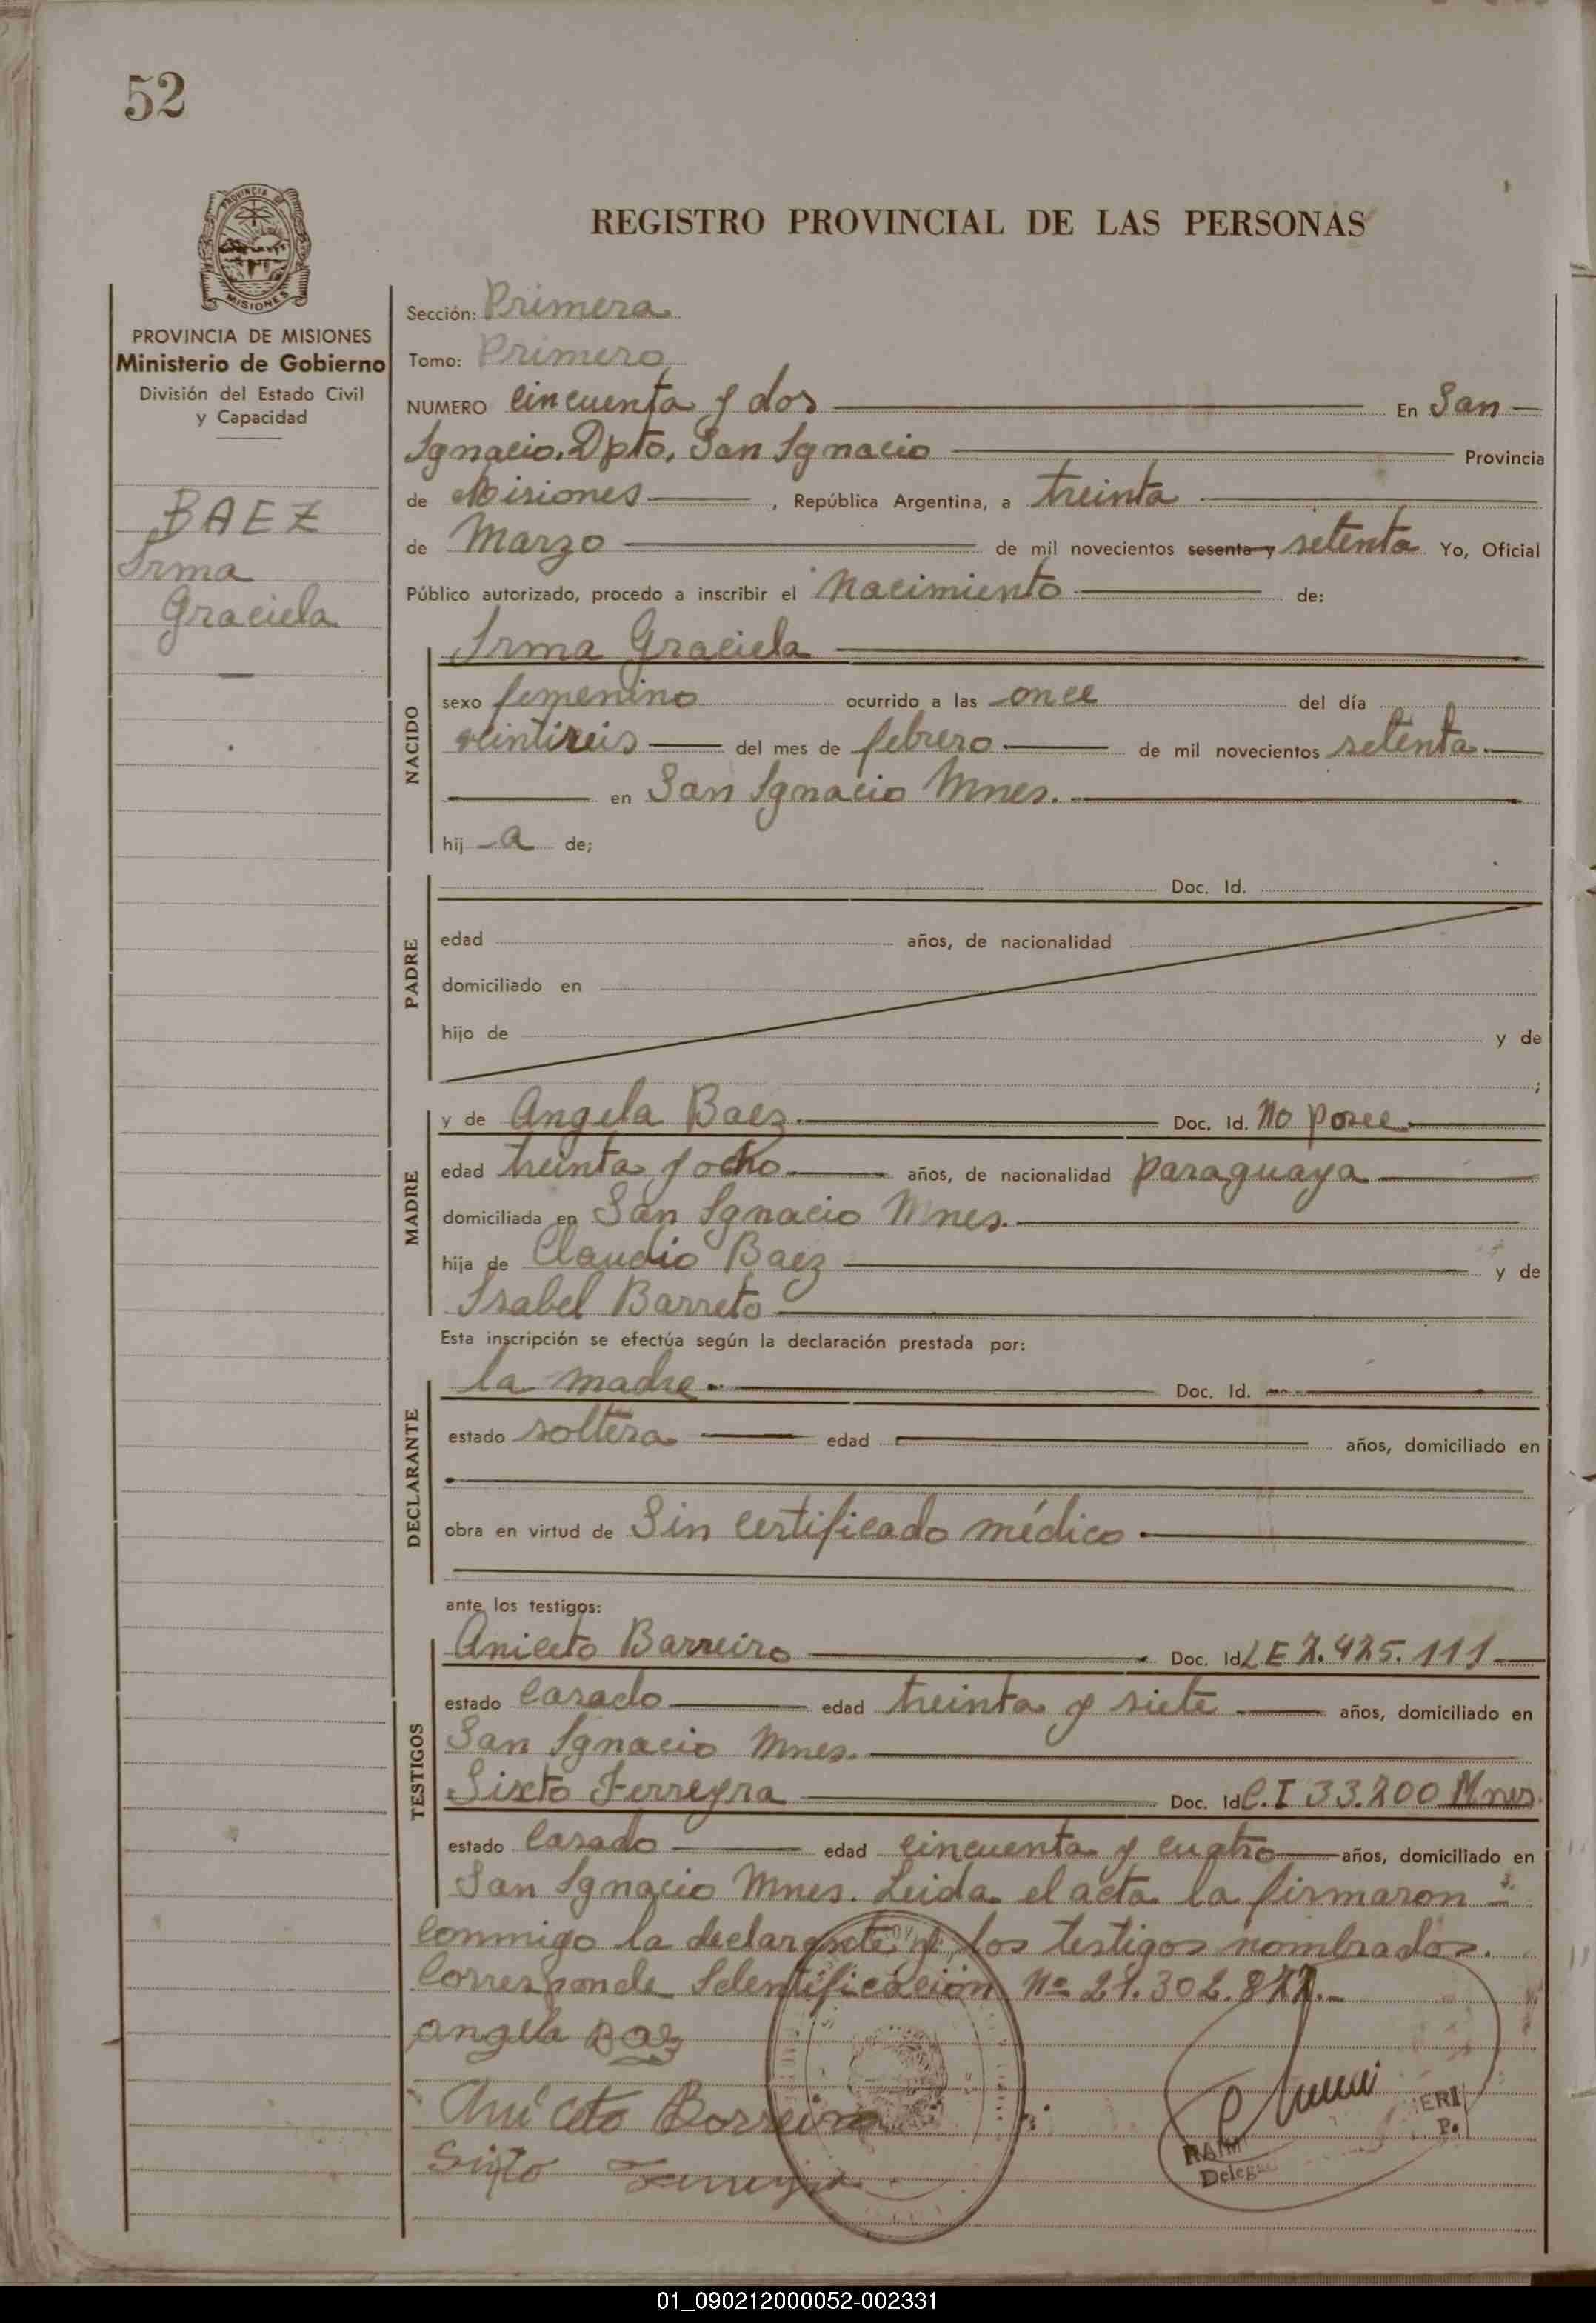 52
PROVINCIA DE
MISIONES
PROVINCIA DE MISIONES
Ministerio de Gobierno
División del Estado Civil
y Capacidad
BAEZ
Irma
Graciela
REGISTRO PROVINCIAL DE LAS PERSONAS
Sección: Primera
Tomo: Primero
NUMERO Cincuenta y dos En San
Ignacio. Dpto. San Ignacio Provincia
de Misiones, República Argentina, a treinta
de Marzo de mil novecientos sesenta y setenta Yo, Oficial
Público autorizado, procedo a inscribir el Nacimiento de:
NACIDO
Irma Graciela
sexo femenino ocurrido a las once del día
veintiseis del mes de febrero de mil novecientos setenta.
en San Ignacio Mnes.
hij a de;
PADRE
Doc. Id.
edad años, de nacionalidad
domiciliado en
hijo de y de
;
MADRE
y de Angela Baez. Doc. Id. No posee.
edad treinta y ocho años, de nacionalidad paraguaya
domiciliada en San Ignacio Mnes.
hija de Claudio Baez y de
Isabel Barreto
Esta inscripción se efectúa según la declaración prestada por:
DECLARANTE
la madre. Doc. Id.
estado soltera edad años, domiciliado en
obra en virtud de Sin certificado médico.
ante los testigos:
TESTIGOS
Aniceto Barreiro Doc. Id LE 7.425.111
estado Casado edad treinta y siete años, domiciliado en
San Ignacio Mnes.
Sixto Ferreyra Doc. Id C.I 33.200 Mnes.
estado Casado edad cincuenta y cuatro años, domiciliado en
San Ignacio Mnes. Leida el acta la firmaron
conmigo la declarante y los testigos nombrados.
Corresponde Identificación Nº 21.302.877.
angela Baez
Aniceto Borreiro
Sixto Ferreyra
ERI
P.
RAIM
Delega
01_090212000052-002331